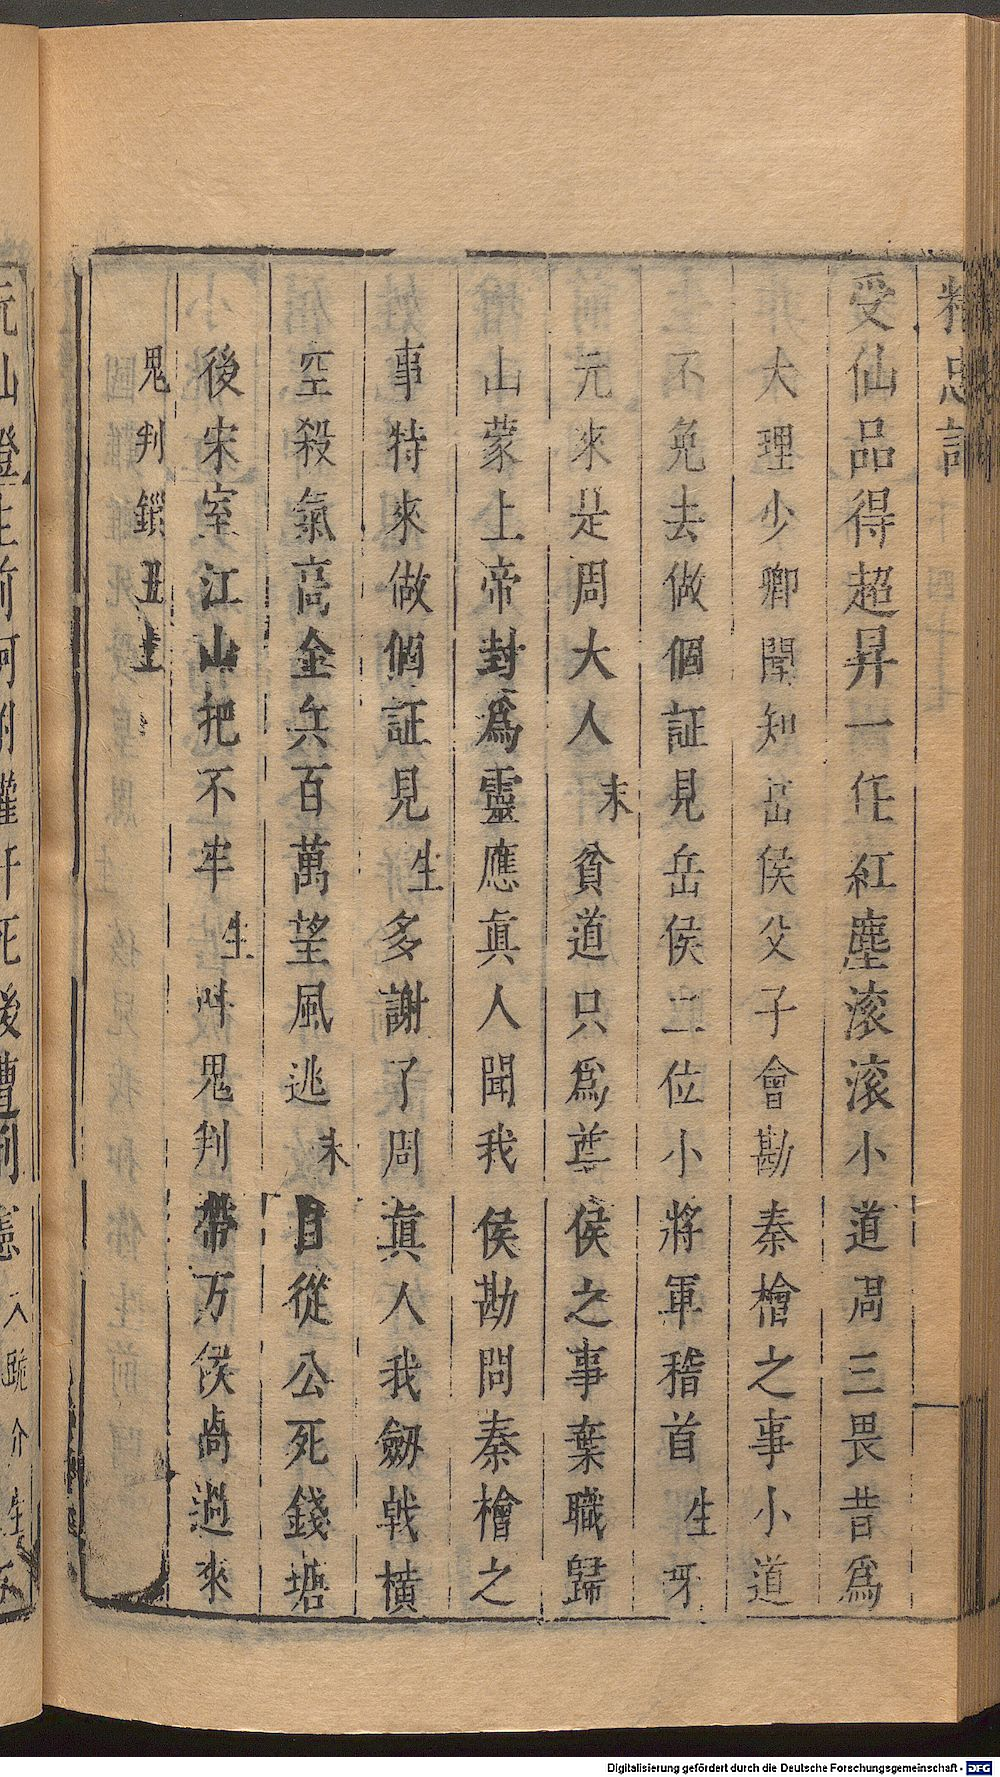 精忠記
受仙品得超昇一任紅塵滚滚小道周三畏昔爲
大理少卿聞知岳侯父子會勘秦檜之事小道
不免去做個証見岳侯二位小將軍稽首生呀
元來是周大人末貧道只爲岳侯之事棄職歸
山蒙上帝封爲靈應眞人聞我侯勘問秦檜之
事特來做個証見生多謝了周眞人我劒戟橫
空殺氣高金兵百萬望風逃末自從公死錢塘
後宋室江山把不牢生叫鬼判帶万俟卨過來
鬼判鎖丑上
Digitalisierung gefördert durch die Deutsche Forschungsgemeinschaft - DFG